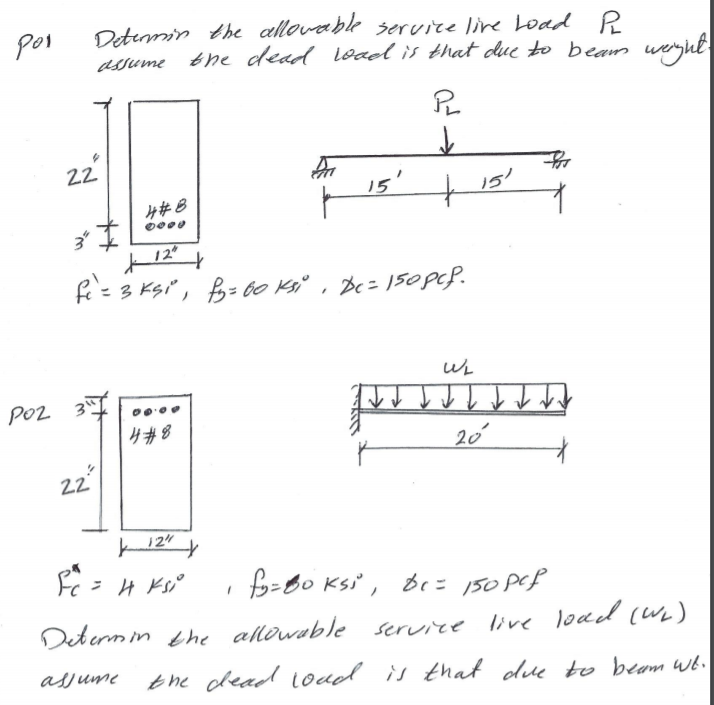 P01 Determin the allowable service live Load PL
assume the dead load is that due to beam weight.
PL
22"
4#8
3"
12"
15' 15'
fc' = 3 Ksi, fy = 60 Ksi, γc = 150 pcf.
WL
P02 3"
4#8
20'
22"
12"
fc' = 4 Ksi, fy = 60 Ksi, γc = 150 pcf
Determin the allowable service live load (WL)
assume the dead load is that due to beam wt.